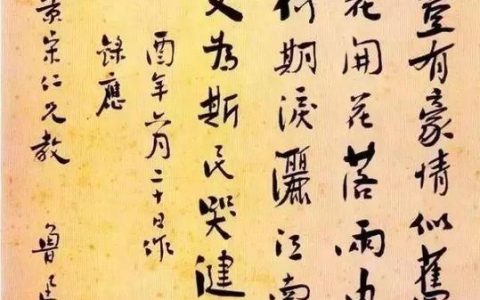 豈有豪情似舊
花開花落兩
何期淚灑江南
又為斯民哭健
酉年六月二十日作
錄應
景宋仁兄教
魯迅